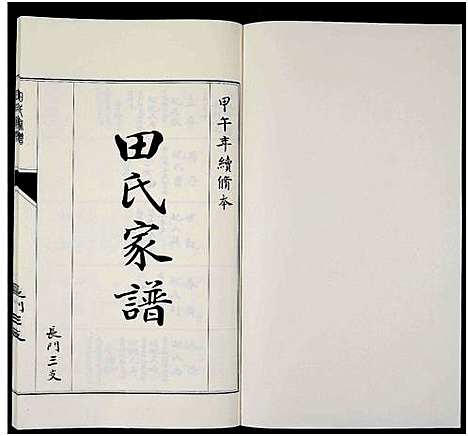 甲午年續修本
田氏家譜
長門三支
田氏家譜
長門三支